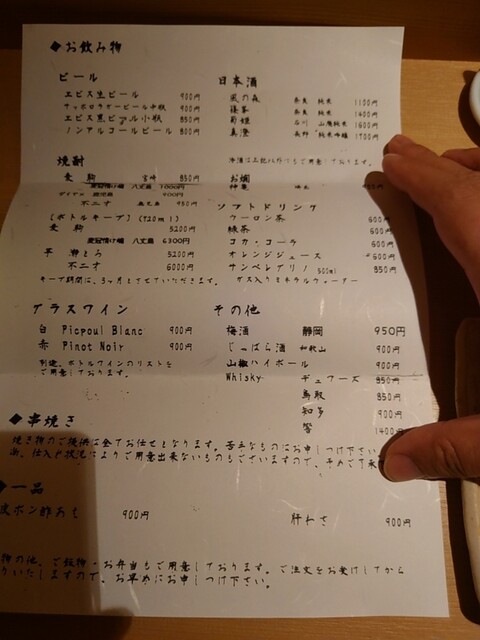 ◆お飲み物
ビール
エビス生ビール 900円
サッポロラガービール中瓶 900円
エビス黒ビアル小瓶 850円
ノンアルコールビール 800円
日本酒
風の森 奈良 純米 1100円
篠峯 奈良 純米 1400円
菊姫 石川 山廃純米 1600円
真澄 長野 純米吟醸 1700円
冷酒は上記以外にもご用意しております。
お燗
神亀
焼酎
愛駒 宮崎 850円
麦冠情け嶋 八丈島 1000円
鹿児島 900円
不二才 鹿児島 950円
(ボトルキープ)(720ml)
愛駒 5200円
麦冠情け嶋 八丈島 6300円
芋 5200円
不二才 6000円
キープ期間は、3ヶ月とさせていただきます。
ソフトドリンク
ウーロン茶 600円
緑茶 600円
コカ・コーラ 600円
オレンジジュース 600円
サンペレグリノ 500ml 850円
ガス入りミネラルウォーター
グラスワイン
白 Picpoul Blanc 900円
赤 Pinot Noir 900円
別途、ボトルワインのリストを
ご用意しております。
その他
梅酒 静岡 950円
じゃばら酒 和歌山 900円
山椒ハイボール 900円
Whisky デュワーズ 850円
鳥取 850円
知多 900円
響 1400円
◆串焼き
焼き物のご提供は全てお任せとなります。苦手なものはお申しつけ下さい
尚、仕入や状況によりご用意出来ないものもございますので、予めご了承
◆一品
皮ポン酢あえ 900円
肝わさ 900円
物の他、ご飯物・お弁当もご用意しております。ご注文をお受けしてから
りいたしますので、お早めにお申しつけ下さい。